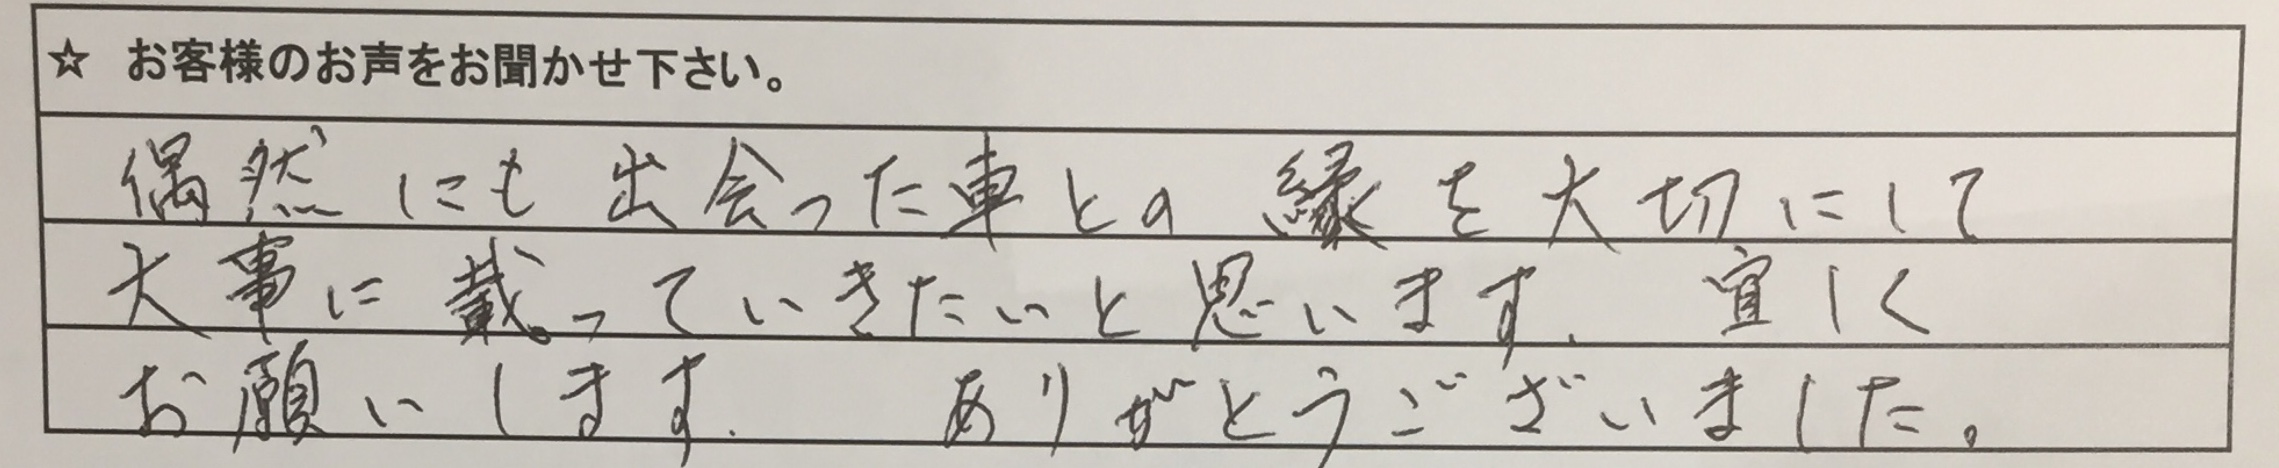 ☆ お客様のお声をお聞かせ下さい。
偶然にも出会った車との縁を大切にして
大事に戴っていきたいと思います. 宜しく
お願いします. ありがとうございました。